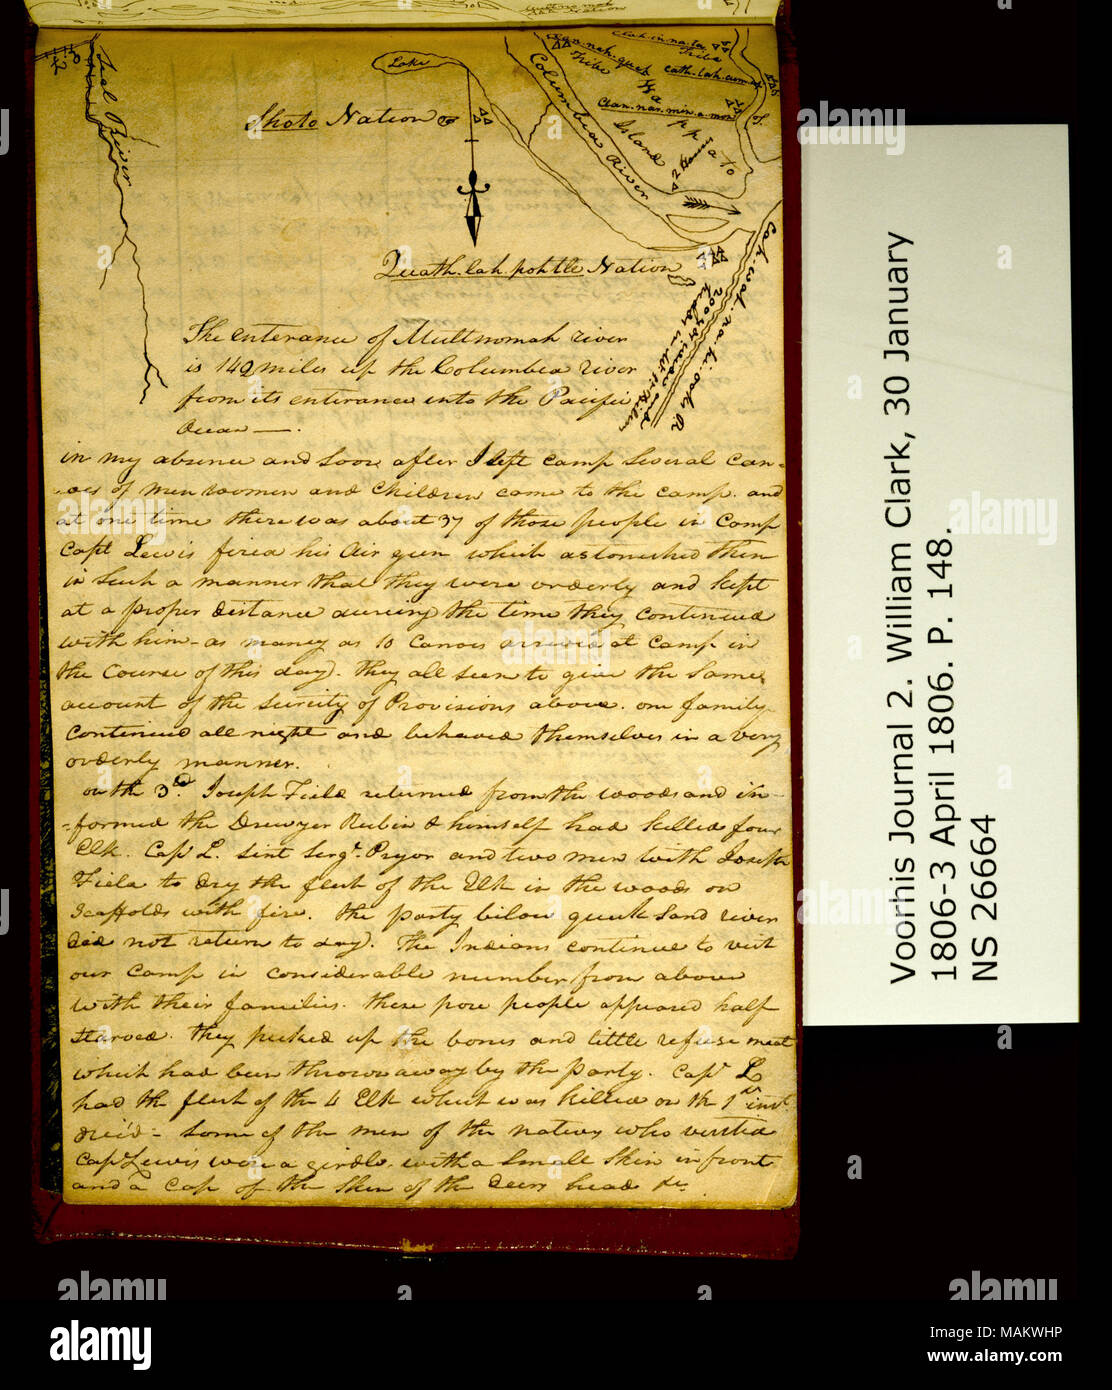 Seal River
Lake
Shoto Nation
Columbia River
Clan-nah-quah
Tribe
Clah-in-na-ta
Tribe
Cath-lah-cum-
Clan-nar-min-a-mon
Wappato
Island
2 Houses
Quath-lah-pohtle Nation
Cah-wah-na-hi-ooks R
200 yds wide and
The enterance of Multnomah river
is 142 miles up the Columbia river
from its enterance into the Pacific
Ocean —.
in my absence and soon after I left camp Several Can-
-oes of men women and Children came to the camp. and
at one time there was about 37 of those people in Camp
Capt Lewis fired his Air gun which astonished them
in Such a manner that they were orderly and kept
at a proper distance dureing the time they continued
with him - as many as 10 Canoes arrived at Camp in
the Course of this day. they all seem to give the Same
account of the Scercity of Provisions above. one family
continued all night and behaved themselves in a very
orderly manner.
on the 3d. Joseph Field returned from the woods and in-
-formed the Drewyer Rubin & himself had killed four
Elk. Capt L. sent Sergt. Pryor and two men with Joseph
Field to dry the flesh of the Elk in the woods on
Scaffolds with fire. the party below quick Sand river
did not return to day. The Indians continued to visit
our Camp in considerable number from above
with their families. these pore people appeared half
starved. they picked up the bones and little refuse meat
which had been thrown away by the party. Capt L
had the flesh of the 4 Elk which was killed on the 1st inst
dried - Some of the men of the natives who visited
Capt Lewis wore a girdle with a Small Skin in front
and a Cap of the Skin of the deers head &c.
Voorhis Journal 2. William Clark, 30 January
1806-3 April 1806. P. 148.
NS 26664
alamy
Image ID: MAKWHP
www.alamy.com